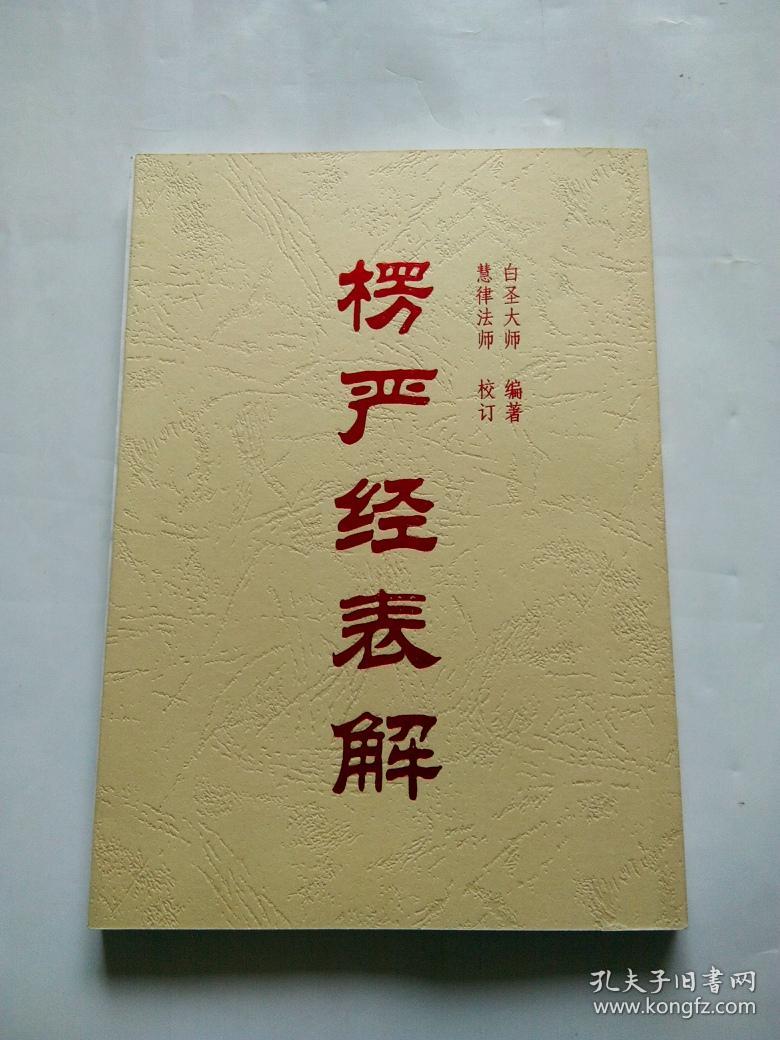 白圣大师 编著
慧律法师 校订
楞严经表解
孔夫子旧书网
www.kongfz.com